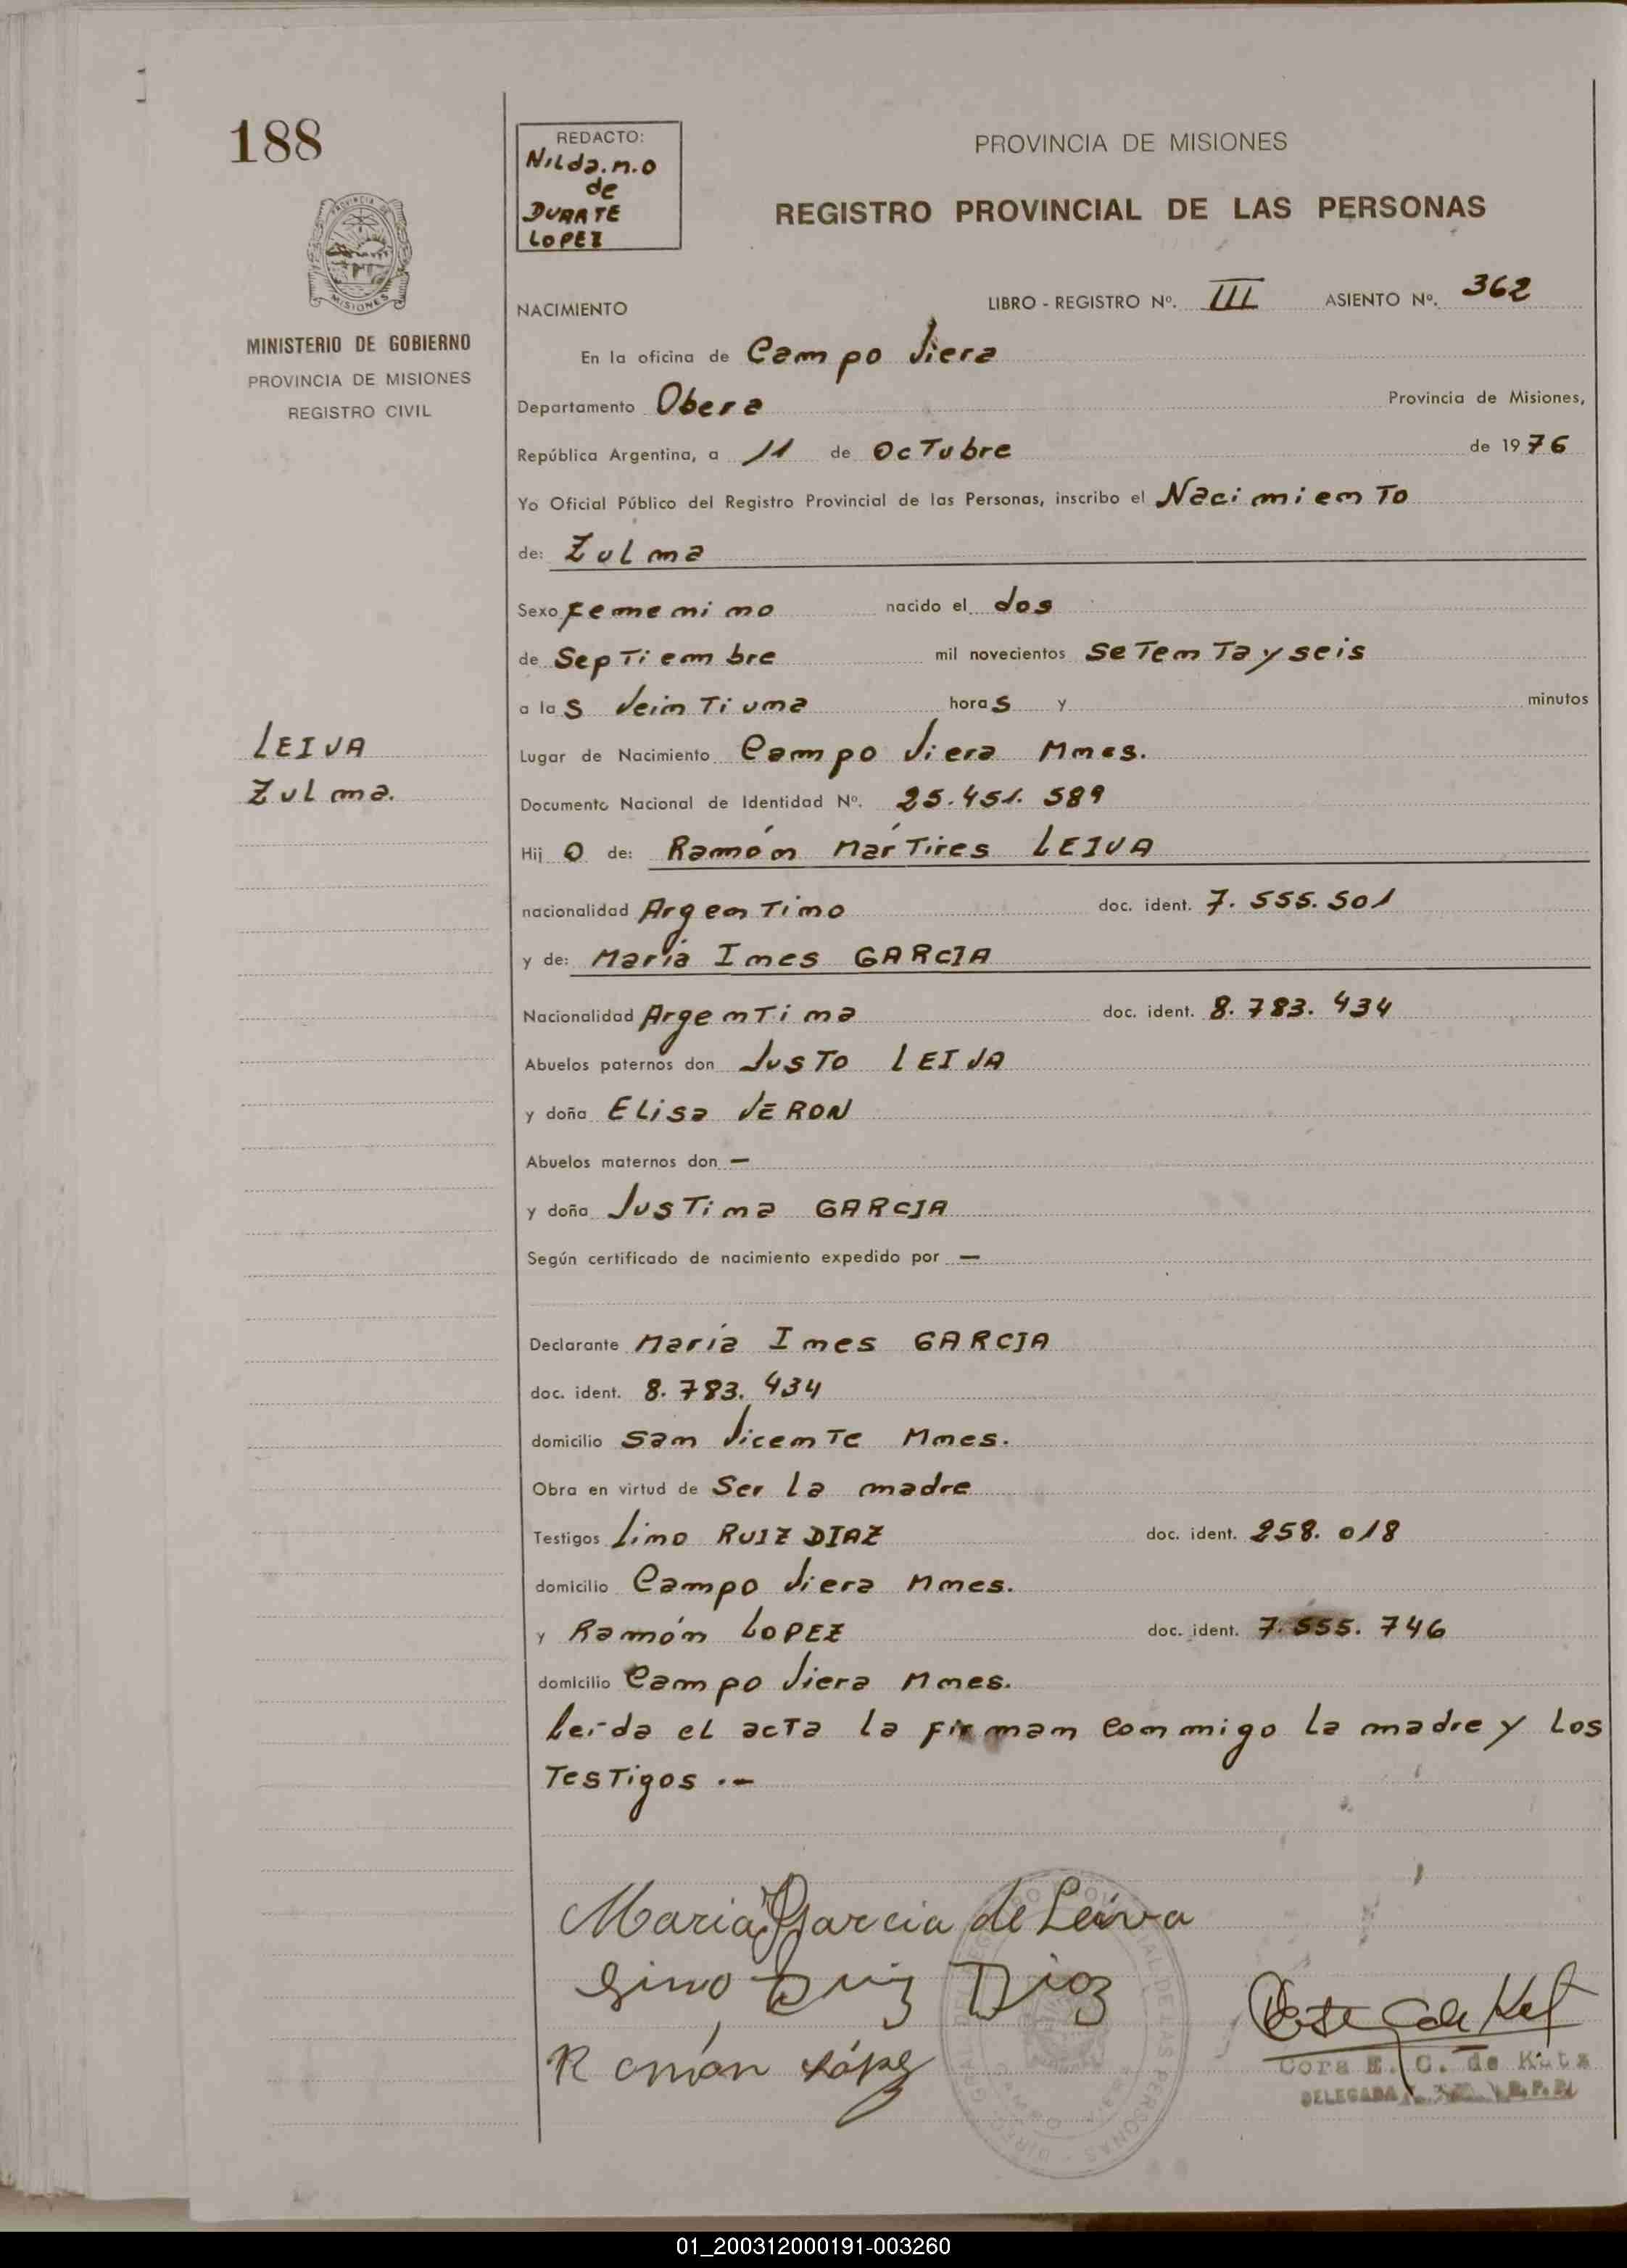 188
REDACTO:
Nilda.n.o
de
DUARTE
LOPEZ
PROVINCIA DE MISIONES
REGISTRO PROVINCIAL DE LAS PERSONAS
PROVINCIA DE
MISIONES
MINISTERIO DE GOBIERNO
PROVINCIA DE MISIONES
REGISTRO CIVIL
NACIMIENTO LIBRO - REGISTRO Nº. III ASIENTO Nº. 362
En la oficina de Campo Viera
Departamento Obera Provincia de Misiones,
República Argentina, a 11 de Octubre de 1976
Yo Oficial Público del Registro Provincial de las Personas, inscribo el Nacimiento
de: Zulma
Sexo Femenino nacido el dos
de Septiembre mil novecientos Setenta y seis
a las Veintiuna horas y minutos
LEIVA
Zulma.
Lugar de Nacimiento Campo Viera Mnes.
Documento Nacional de Identidad Nº. 25.451.589
Hij O de: Ramón Mártires LEIVA
nacionalidad Argentino doc. ident. 7.555.501
y de: María Ines GARCIA
Nacionalidad Argentina doc. ident. 8.783.434
Abuelos paternos don Justo LEIVA
y doña Elisa VERON
Abuelos maternos don —
y doña Justina GARCIA
Según certificado de nacimiento expedido por —
Declarante María Ines GARCIA
doc. ident. 8.783.434
domicilio San Vicente Mnes.
Obra en virtud de Ser la madre
Testigos Lino RUIZ DIAZ doc. ident. 258.018
domicilio Campo Viera Mnes.
y Ramón LOPEZ doc. ident. 7.555.746
domicilio Campo Viera Mnes.
Leida el acta la firman conmigo la madre y los
Testigos .-
Maria Garcia de Leiva
Lino Ruiz Diaz
Ramón López
Cora E. C. de Kutz
DELEGADA R.P.P.
01_200312000191-003260